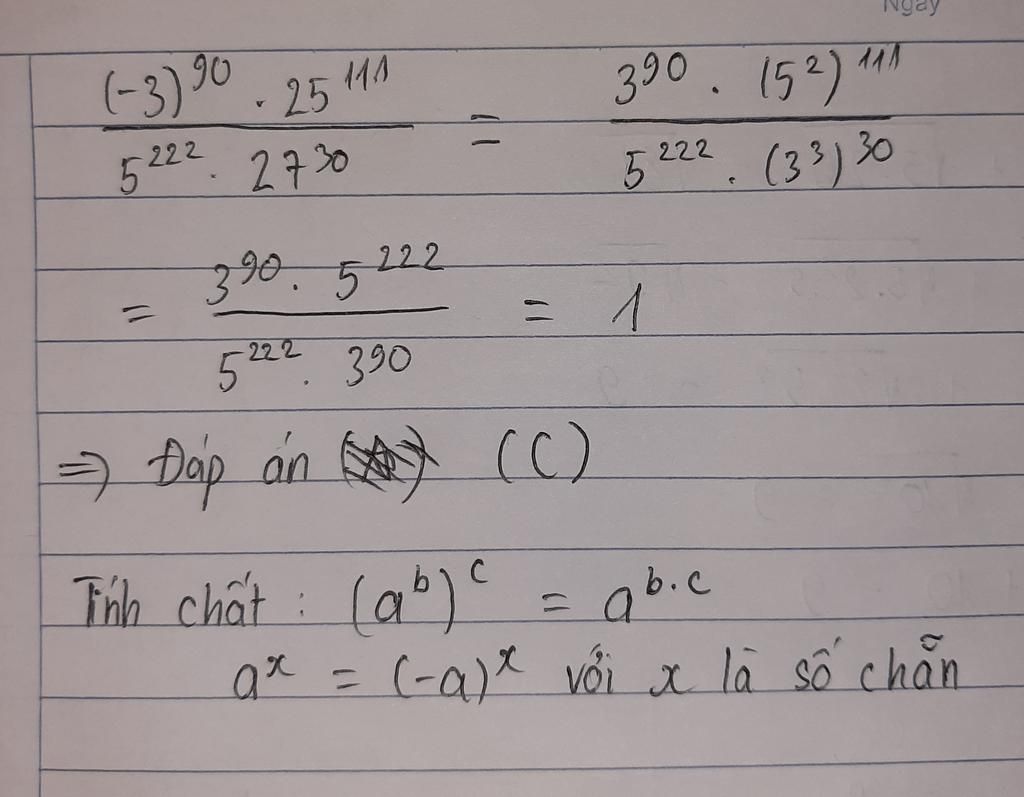 Ngày
(-3)^90 . 25^111 / 5^222 . 27^30 = 3^90 . (5^2)^111 / 5^222 . (3^3)^30
= 3^90 . 5^222 / 5^222 . 3^90 = 1
=> Đáp án (C)
Tính chất : (a^b)^c = a^b.c
a^x = (-a)^x với x là số chẵn